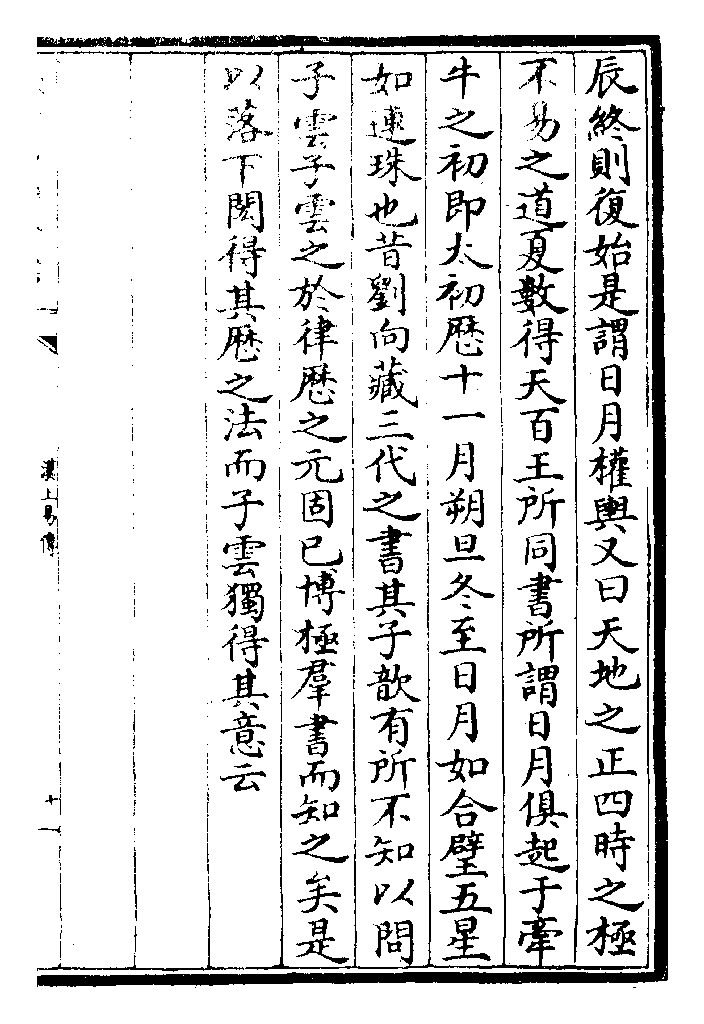 辰終則復始是謂日月權輿又曰天地之正四時之極
不易之道夏數得天百王所同書所謂日月俱起于牽
牛之初即太初厯十一月朔旦冬至日月如合璧五星
如連珠也昔劉向藏三代之書其子歆有所不知以問
子雲子雲之於律厯之元固已博極羣書而知之矣是
以落下閎得其厯之法而子雲獨得其意云
漢上易傳
十一